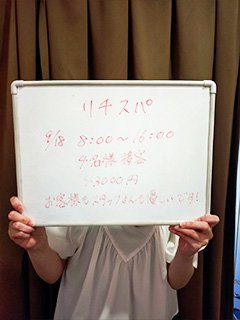 リチスパ
9/18 8:00〜16:00
4名様 接客
3000円
お客様もスタッフさんも優しいです!